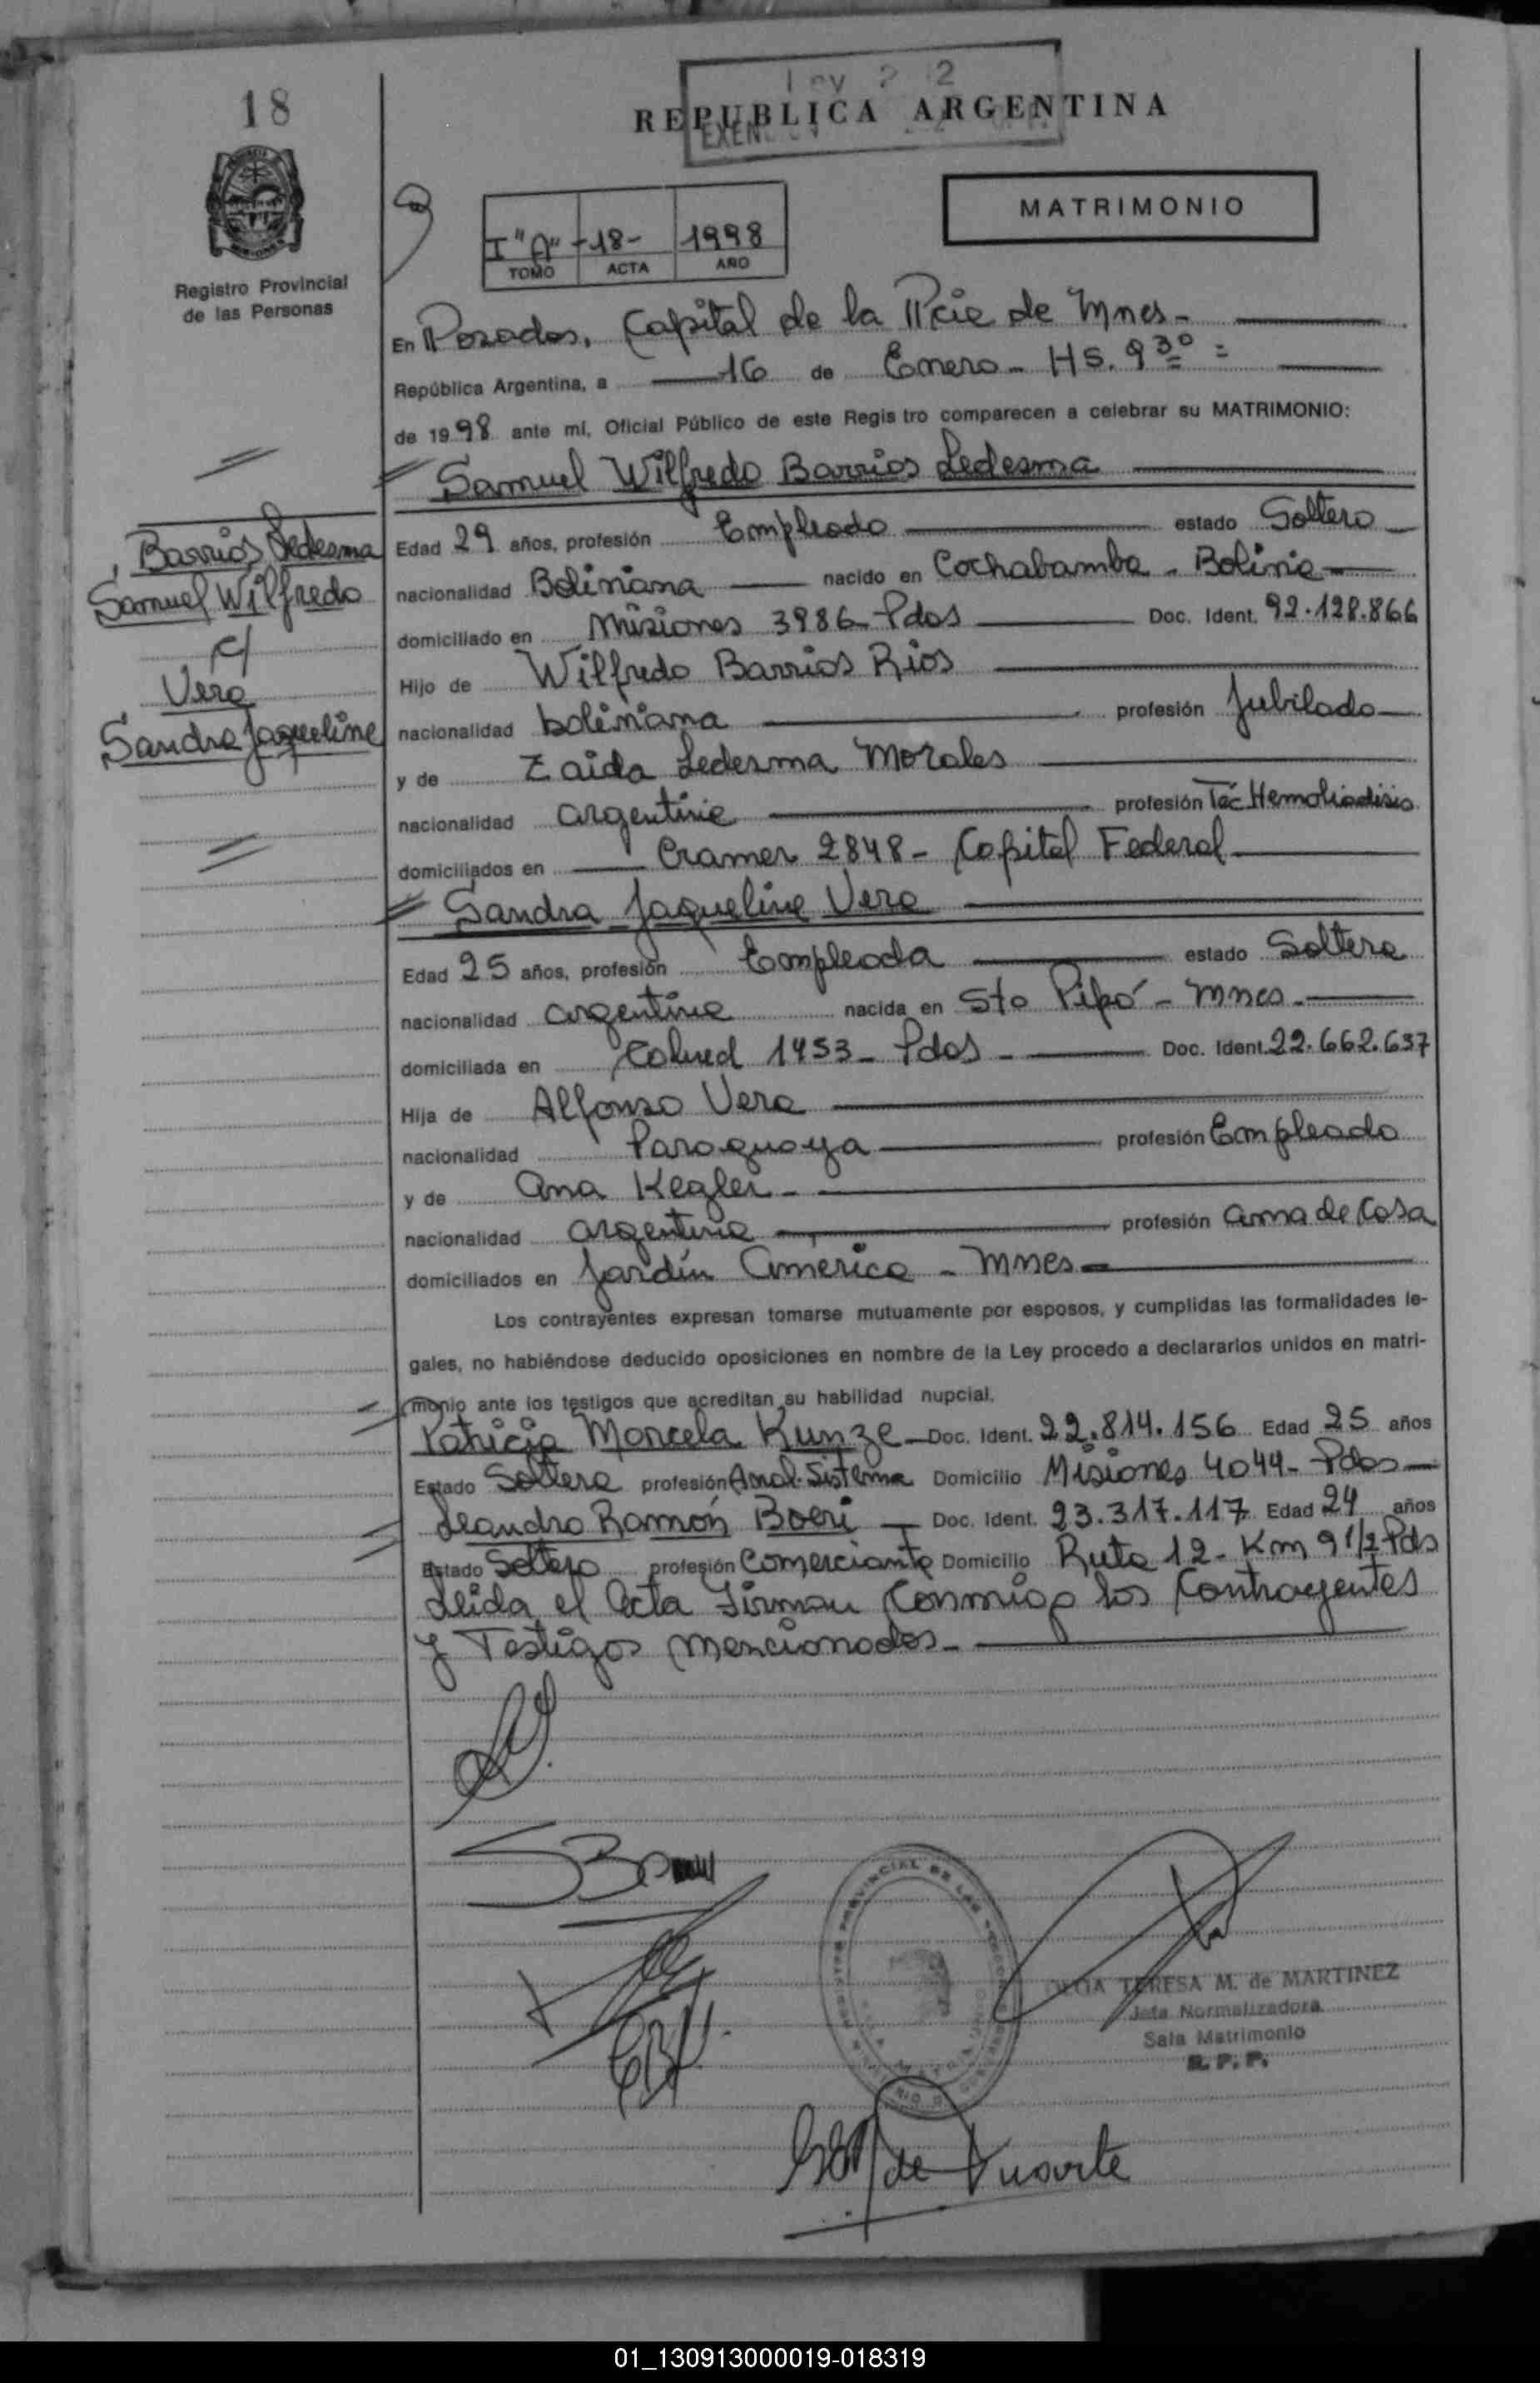 18
REPUBLICA ARGENTINA
MATRIMONIO
I "A" -18- 1998
TOMO ACTA AÑO
Registro Provincial
de las Personas
En Posadas, Capital de la Pcia de Mnes-
República Argentina, a 16 de Enero- HS. 9 30 =
de 1998 ante mí, Oficial Público de este Registro comparecen a celebrar su MATRIMONIO:
Samuel Wilfredo Barrios Ledesma
Edad 29 años, profesión Empleado estado Soltero
nacionalidad Boliviana nacido en Cochabamba - Bolivia
domiciliado en Misiones 3986 - Pdas Doc. Ident. 92.128.866
Hijo de Wilfredo Barrios Rios
nacionalidad boliviana profesión Jubilado
y de Zaida Ledesma Morales
nacionalidad argentina profesión Téc. Hemoliadisis
domiciliados en Cramer 2848 - Capital Federal
Sandra Jaqueline Vera
Edad 25 años, profesión Empleada estado Soltera
nacionalidad argentina nacida en Sto Pipó - Mnes-
domiciliada en 1453 - Pdas - Doc. Ident. 22.662.637
Hija de Alfonso Vera
nacionalidad Paraguaya profesión Empleado
y de Ana Kegler-
nacionalidad argentina profesión ama de Casa
domiciliados en Jardín América - Mnes-
Los contrayentes expresan tomarse mutuamente por esposos, y cumplidas las formalidades le-
gales, no habiéndose deducido oposiciones en nombre de la Ley procedo a declararlos unidos en matri-
monio ante los testigos que acreditan su habilidad nupcial.
Patricia Marcela Kunze Doc. Ident. 22.814.156 Edad 25 años
Estado Soltera profesión Anal. Sistema Domicilio Misiones 4044 - Pdas
Leandro Ramón Boeri Doc. Ident. 23.317.117 Edad 24 años
Estado Soltero profesión Comerciante Domicilio Ruta 12 - Km 9 1/2 Pds
Leída el Acta Firman Conmigo los Contrayentes
y Testigos mencionados-
Barrios Ledesma
Samuel Wilfredo
c/
Vera
Sandra Jaqueline
TERESA M. de MARTINEZ
Jefa Normalizadora
Sala Matrimonio
R. P. P.
de Duarte
01_130913000019-018319